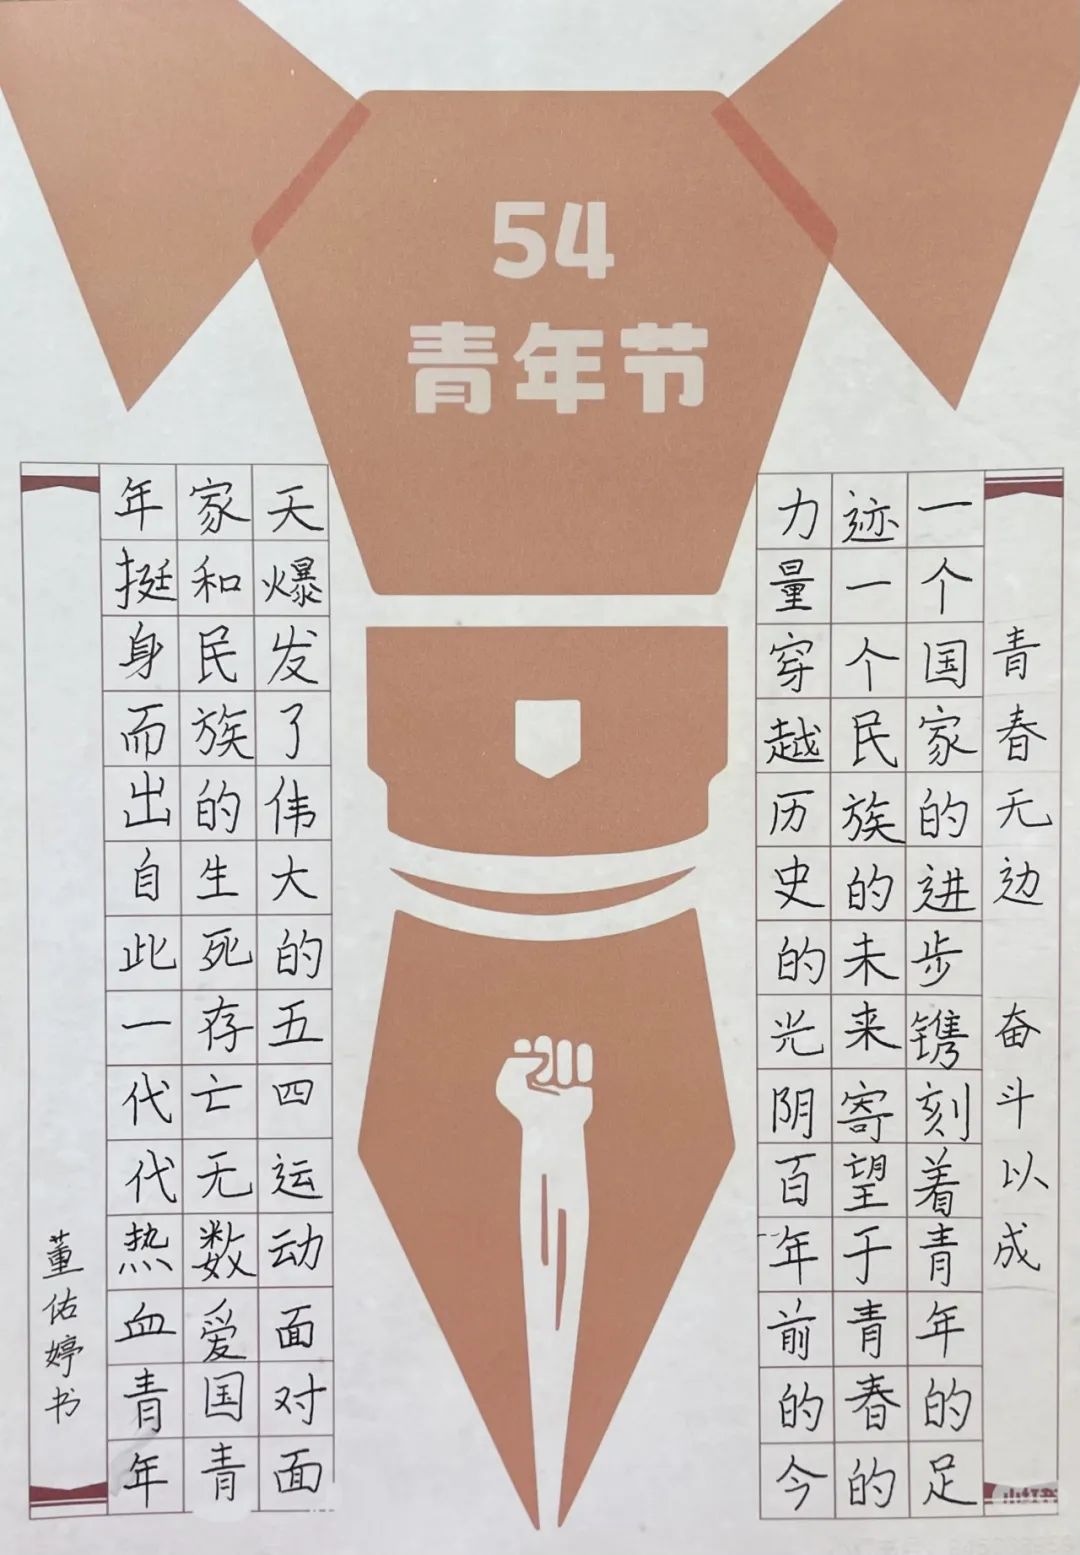 54
青年节
青春无边 奋斗以成
一个国家的进步镌刻着青年的足
迹一个民族的未来寄望于青春的
力量穿越历史的光阴百年前的今
天爆发了伟大的五四运动面对面
家和民族的生死存亡无数爱国青
年挺身而出自此一代代热血青年
董佑婷书
小红书